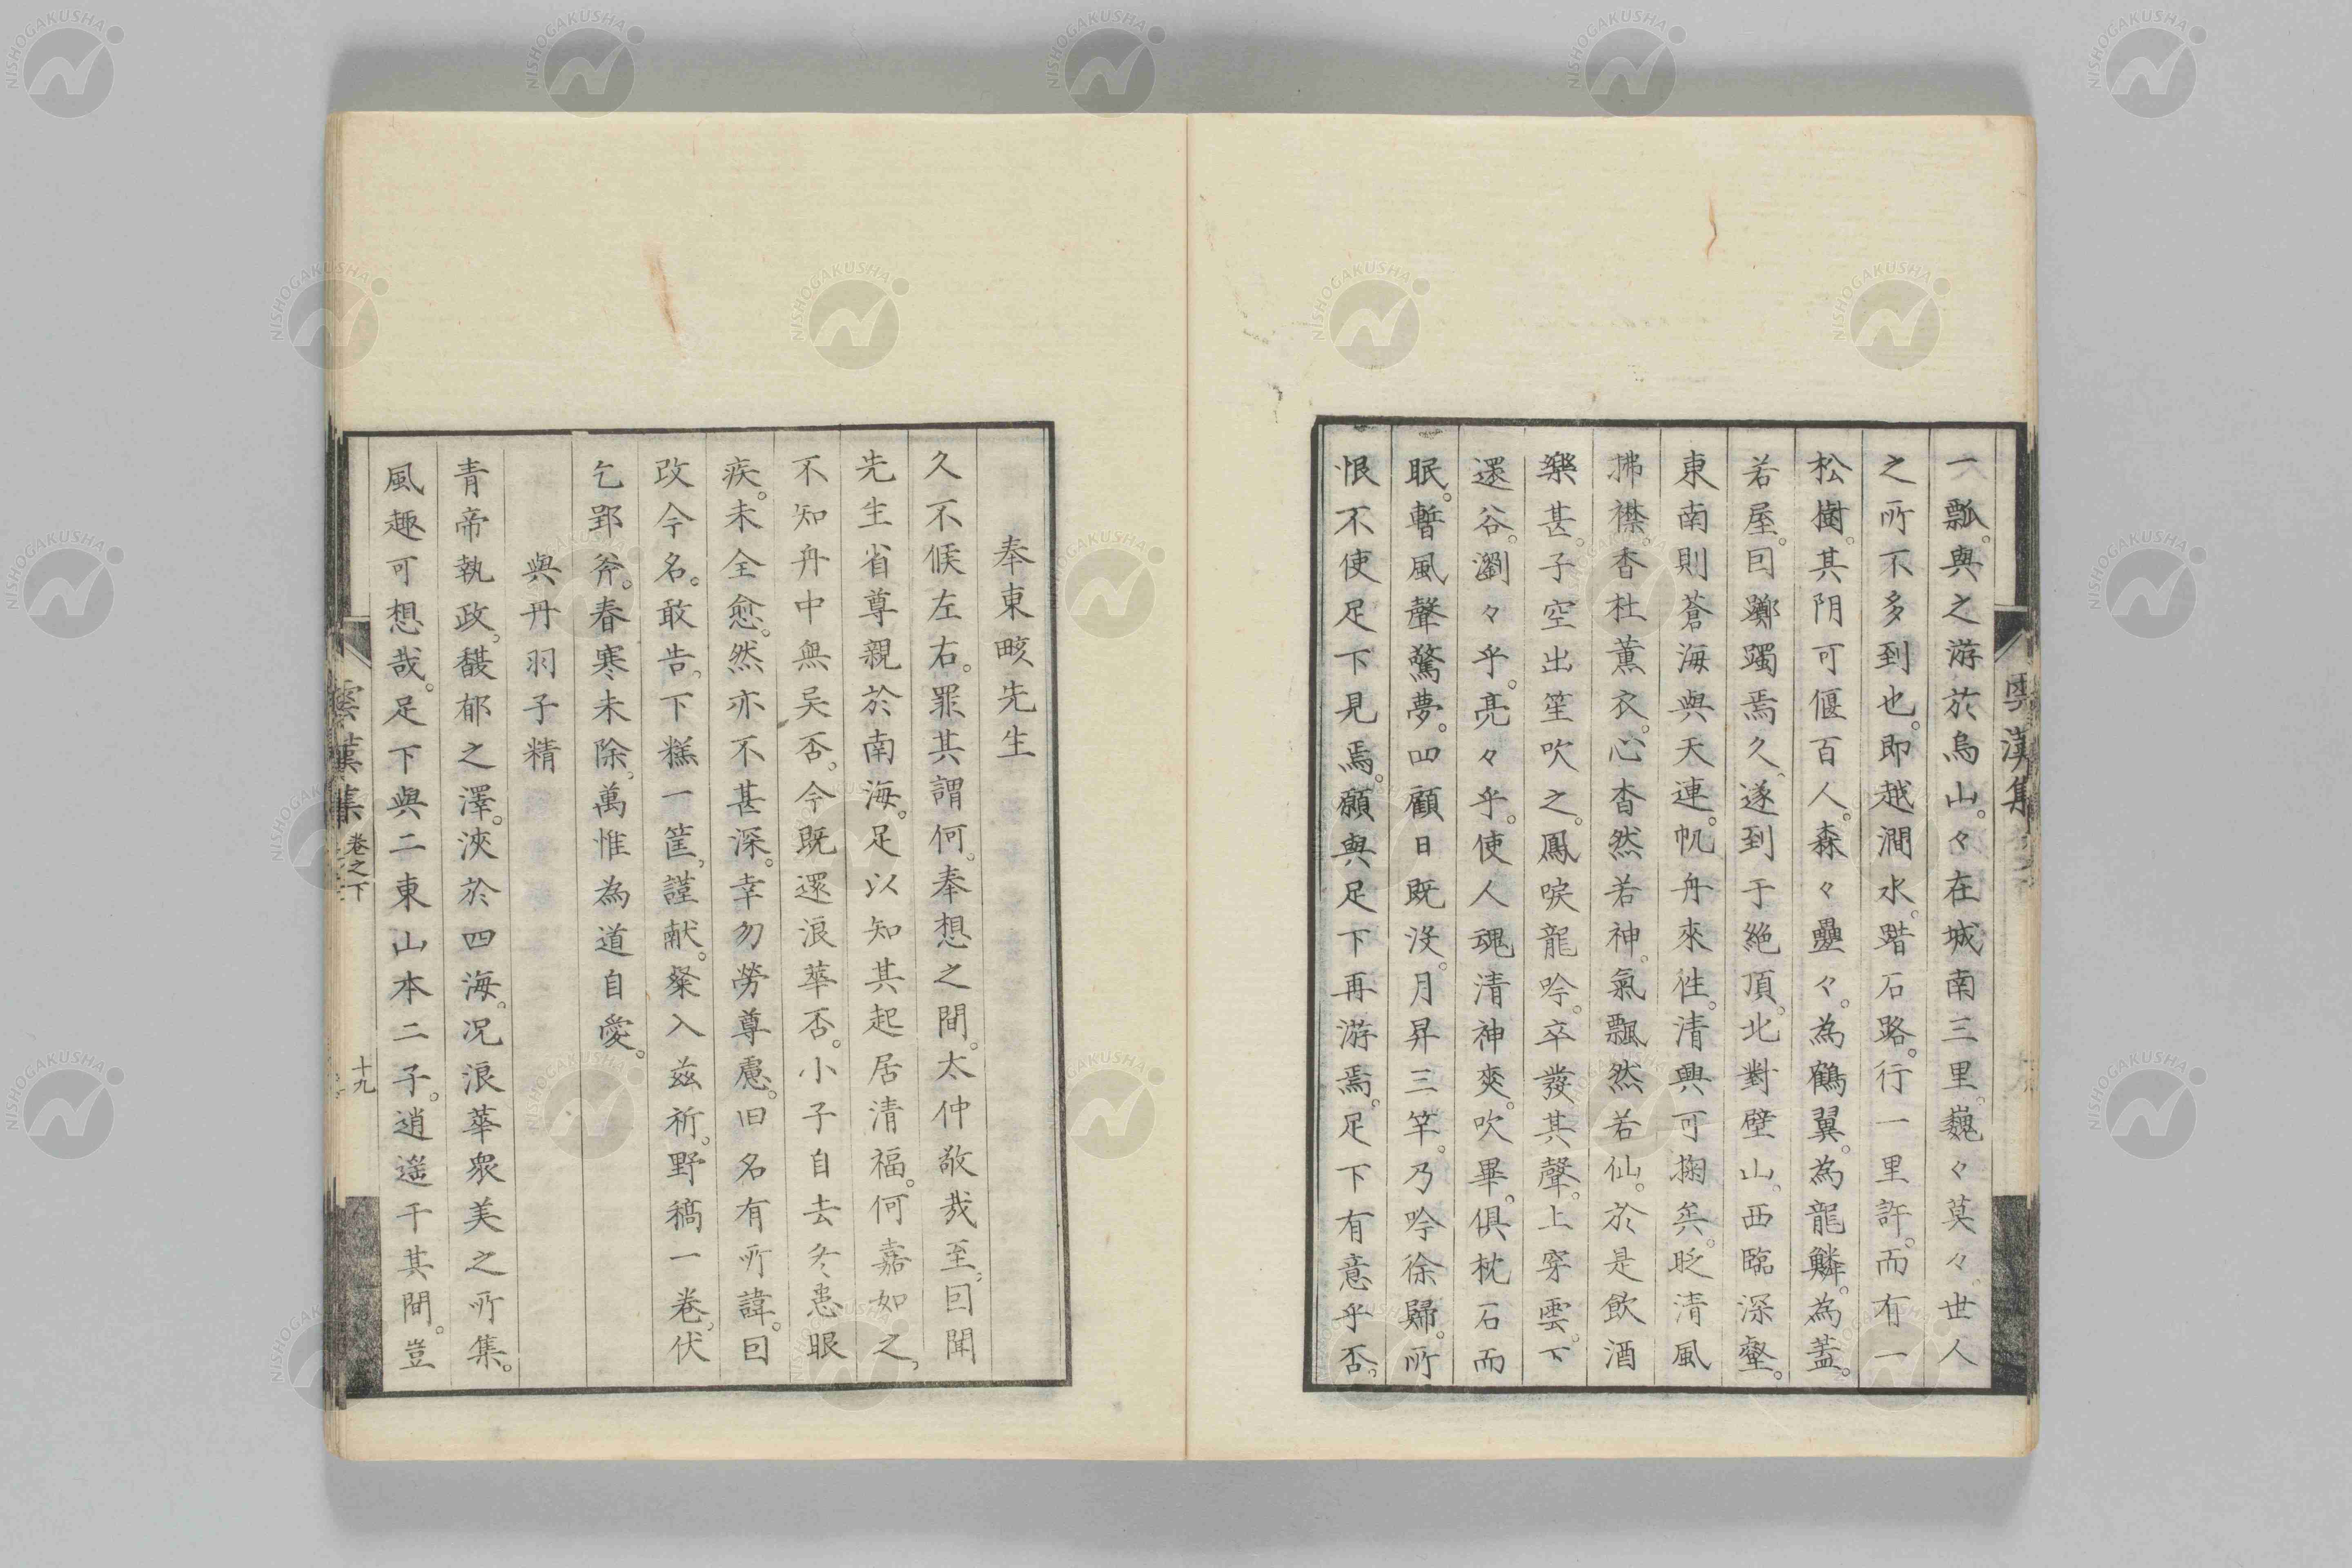 一瓢。與之游於烏山。々在城南三里。巍々莫々。世人
之所不多到也。即越澗水。踏石路。行一里許。而有一
松樹。其阴可偃百人。森々壘々。為鶴翼。為龍鱗。為蓋。
若屋。回躑躅焉久、遂到于絶頂。北對壁山。西臨深壑。
東南則蒼海與天連。帆舟來徃。清興可掬矣。眨清風
拂襟。杏杜薰衣。心杳然若神。氣飄然若仙。於是飲酒
樂甚。子空出笙吹之。鳳唳龍吟。卒發其聲。上穿雲。下
還谷。瀏々乎。亮々乎。使人魂清神爽。吹畢。俱枕石而
眠。暫風聲驚夢。四顧日既沒。月昇三竿。乃吟徐歸。所
恨不使足下見焉。願與足下再游焉。足下有意乎否。
奉東畡先生
久不候左右。罪其謂何。奉想之間。太仲敬哉至、回聞
先生省尊親於南海。足以知其起居清福。何嘉如之、
不知舟中無吴否。今既還浪華否。小子自去冬患眼
疾。未全愈。然亦不甚深。幸勿勞尊慮。旧名有所諱。回
改今名。敢告、下糕一筐、謹献。粲入兹祈。野稿一卷、伏
乞郢斧。春寒未除、萬惟為道自愛。
與丹羽子精
青帝執政、馥郁之澤。浹於四海。况浪華衆美之所集。
風趣可想哉。足下與二東山本二子。逍遥于其間。豈
卷之下
十九